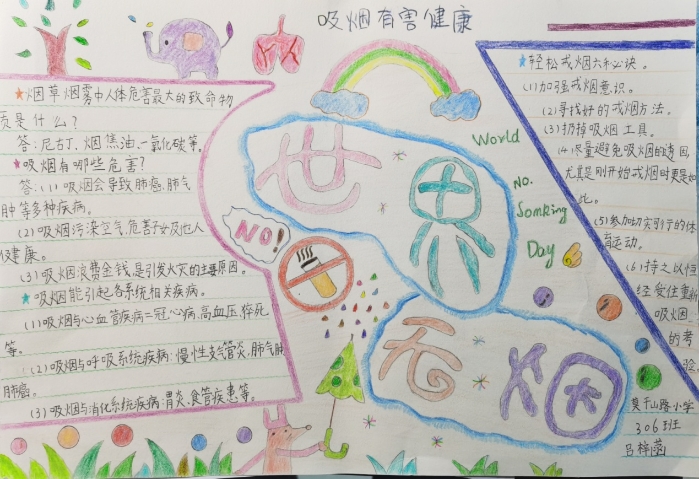 吸烟有害健康
★烟草烟雾中人体危害最大的致命物
质是什么?
答:尼古丁、烟焦油、一氧化碳等。
★吸烟有哪些危害?
答:(1)吸烟会导致肺癌、肺气
肿等多种疾病。
(2)吸烟污染空气,危害子女及他人
健康。
(3)吸烟浪费金钱,是引发火灾的主要原因。
★吸烟能引起各系统相关疾病。
(1)吸烟与心血管疾病=冠心病,高血压,猝死
等。
(2)吸烟与呼吸系统疾病:慢性支气管炎,肺气肿
肺癌。
(3)吸烟与消化系统疾病:胃炎,食管疾患等。
NO!
世界
无烟
World
No.
Somking
Day
★轻松戒烟六种必诀。
(1)加强戒烟意识。
(2)寻找好的戒烟方法。
(3)扔掉吸烟工具。
(4)尽量避免吸烟的诱因,
尤其是刚开始戒烟时更是如
此。
(5)参加切实可行的体
育运动。
(6)持之以恒
经受住重新
吸烟
的考
验
莫干山路小学
306班
吕梓菡